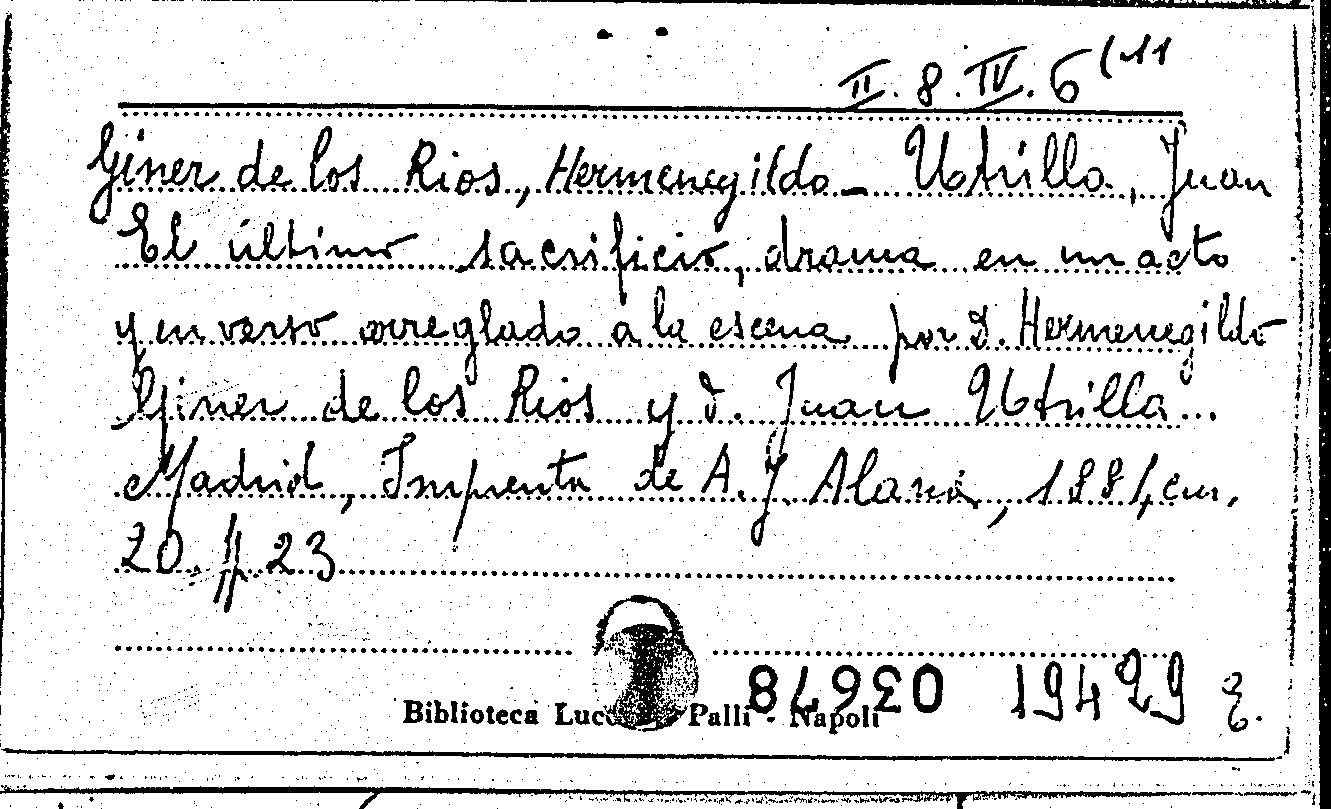 II. 8. IV. 6 (11
Giner de los Rios, Hermenegildo - Utrilla, Juan
El último sacrificio, drama en un acto
y en verso arreglado a la escena por D. Hermenegildo
Giner de los Rios y D. Juan Utrilla...
Madrid, Imprenta de A. J. Alaria, 1884, cm.
20. pp 23
Biblioteca Palli - Napoli
03678 19499 E.